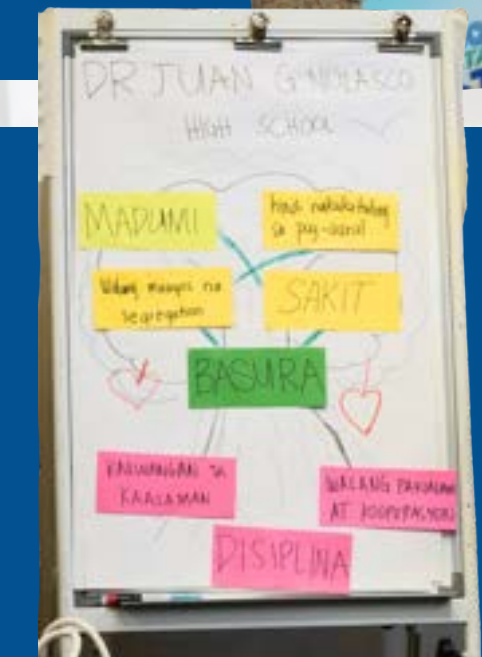 DR JUAN G. NOLASCO
HIGH SCHOOL
MADUMI
hindi
sa pag-aaral
Walang maayos na
segregation
SAKIT
BASURA
KAKULANGAN SA
KAALAMAN
WALANG PAKIALAM
AT KOOPERASYON
DISIPLINA